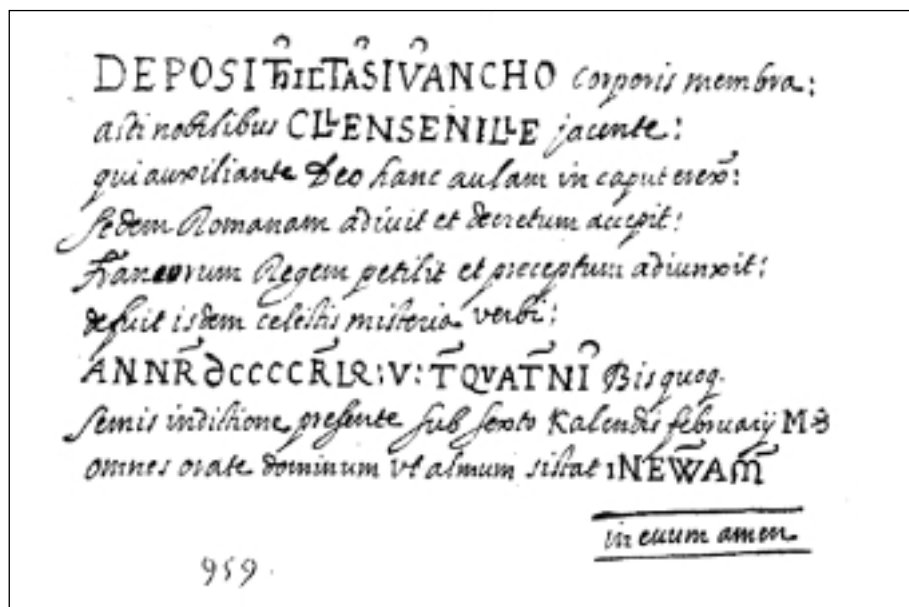 DEPOSITHICTASIVANCHO corporis membra:
asti nobilibus CLLENSENILLE jacente:
qui auxiliante Deo hanc aulam in caput erex̃:
sedem Romanam adivit et decretum accepit:
francorum Regem petilit et preceptum adiunxit:
defuit isdem celestis misteria verbi:
ANNR̃ CCCC V: QVATNI Bis quoq.
semis indictione presente sub sexto Kalendis februarij
omnes orate dominum vt almum sistat INEW̃AM̃
in euum amen.
959.